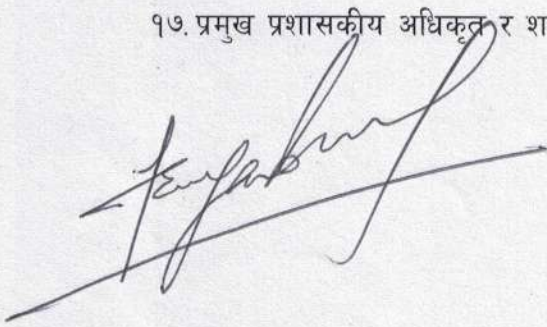 १७. प्रमुख प्रशासकीय अधिकृत र श